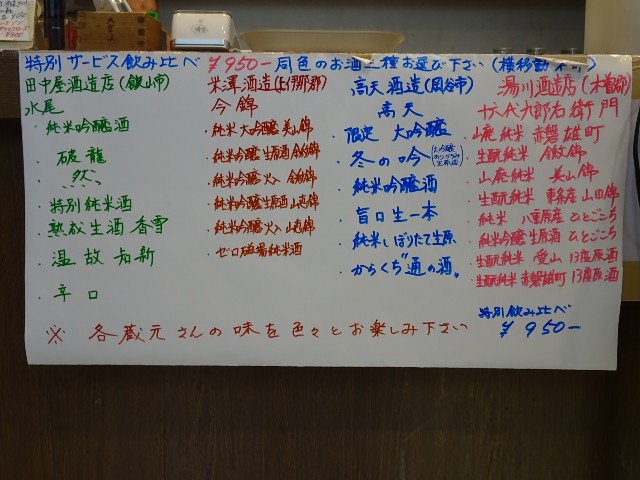 特別サービス飲み比べ ¥950- 同色のお酒三種お選び下さい(横移動不可)
田中屋酒造店(飯山市)
水尾
・純米吟醸酒
・破龍
・特別純米酒
・熟成生酒 香雪
・温故知新
・辛口
米澤酒造(上伊那郡)
今錦
・純米大吟醸 美山錦
・純米吟醸 生原酒
・純米吟醸 火入
・純米吟醸生原酒 山恵錦
・純米吟醸 火入 山恵錦
・ゼロ磁場純米酒
高天酒造(岡谷市)
高天
・限定 大吟醸
・冬の吟
・純米吟醸酒
・旨口生一本
・純米しぼりたて生原
・からくち"通の酒"
湯川酒造店(木曽郡)
十六代六郎右衛門
・山廃純米 赤磐雄町
・生酛純米
・山廃純米 美山錦
・生酛純米 東条産 山田錦
・純米 八重原産 ひとごこち
・純米吟醸 生原酒 ひとごこち
・生酛純米 愛山 13度原酒
・生酛純米 赤磐雄町 13度原酒
特別飲み比べ
¥950-
※ 各蔵元さんの味を色々とお楽しみ下さい